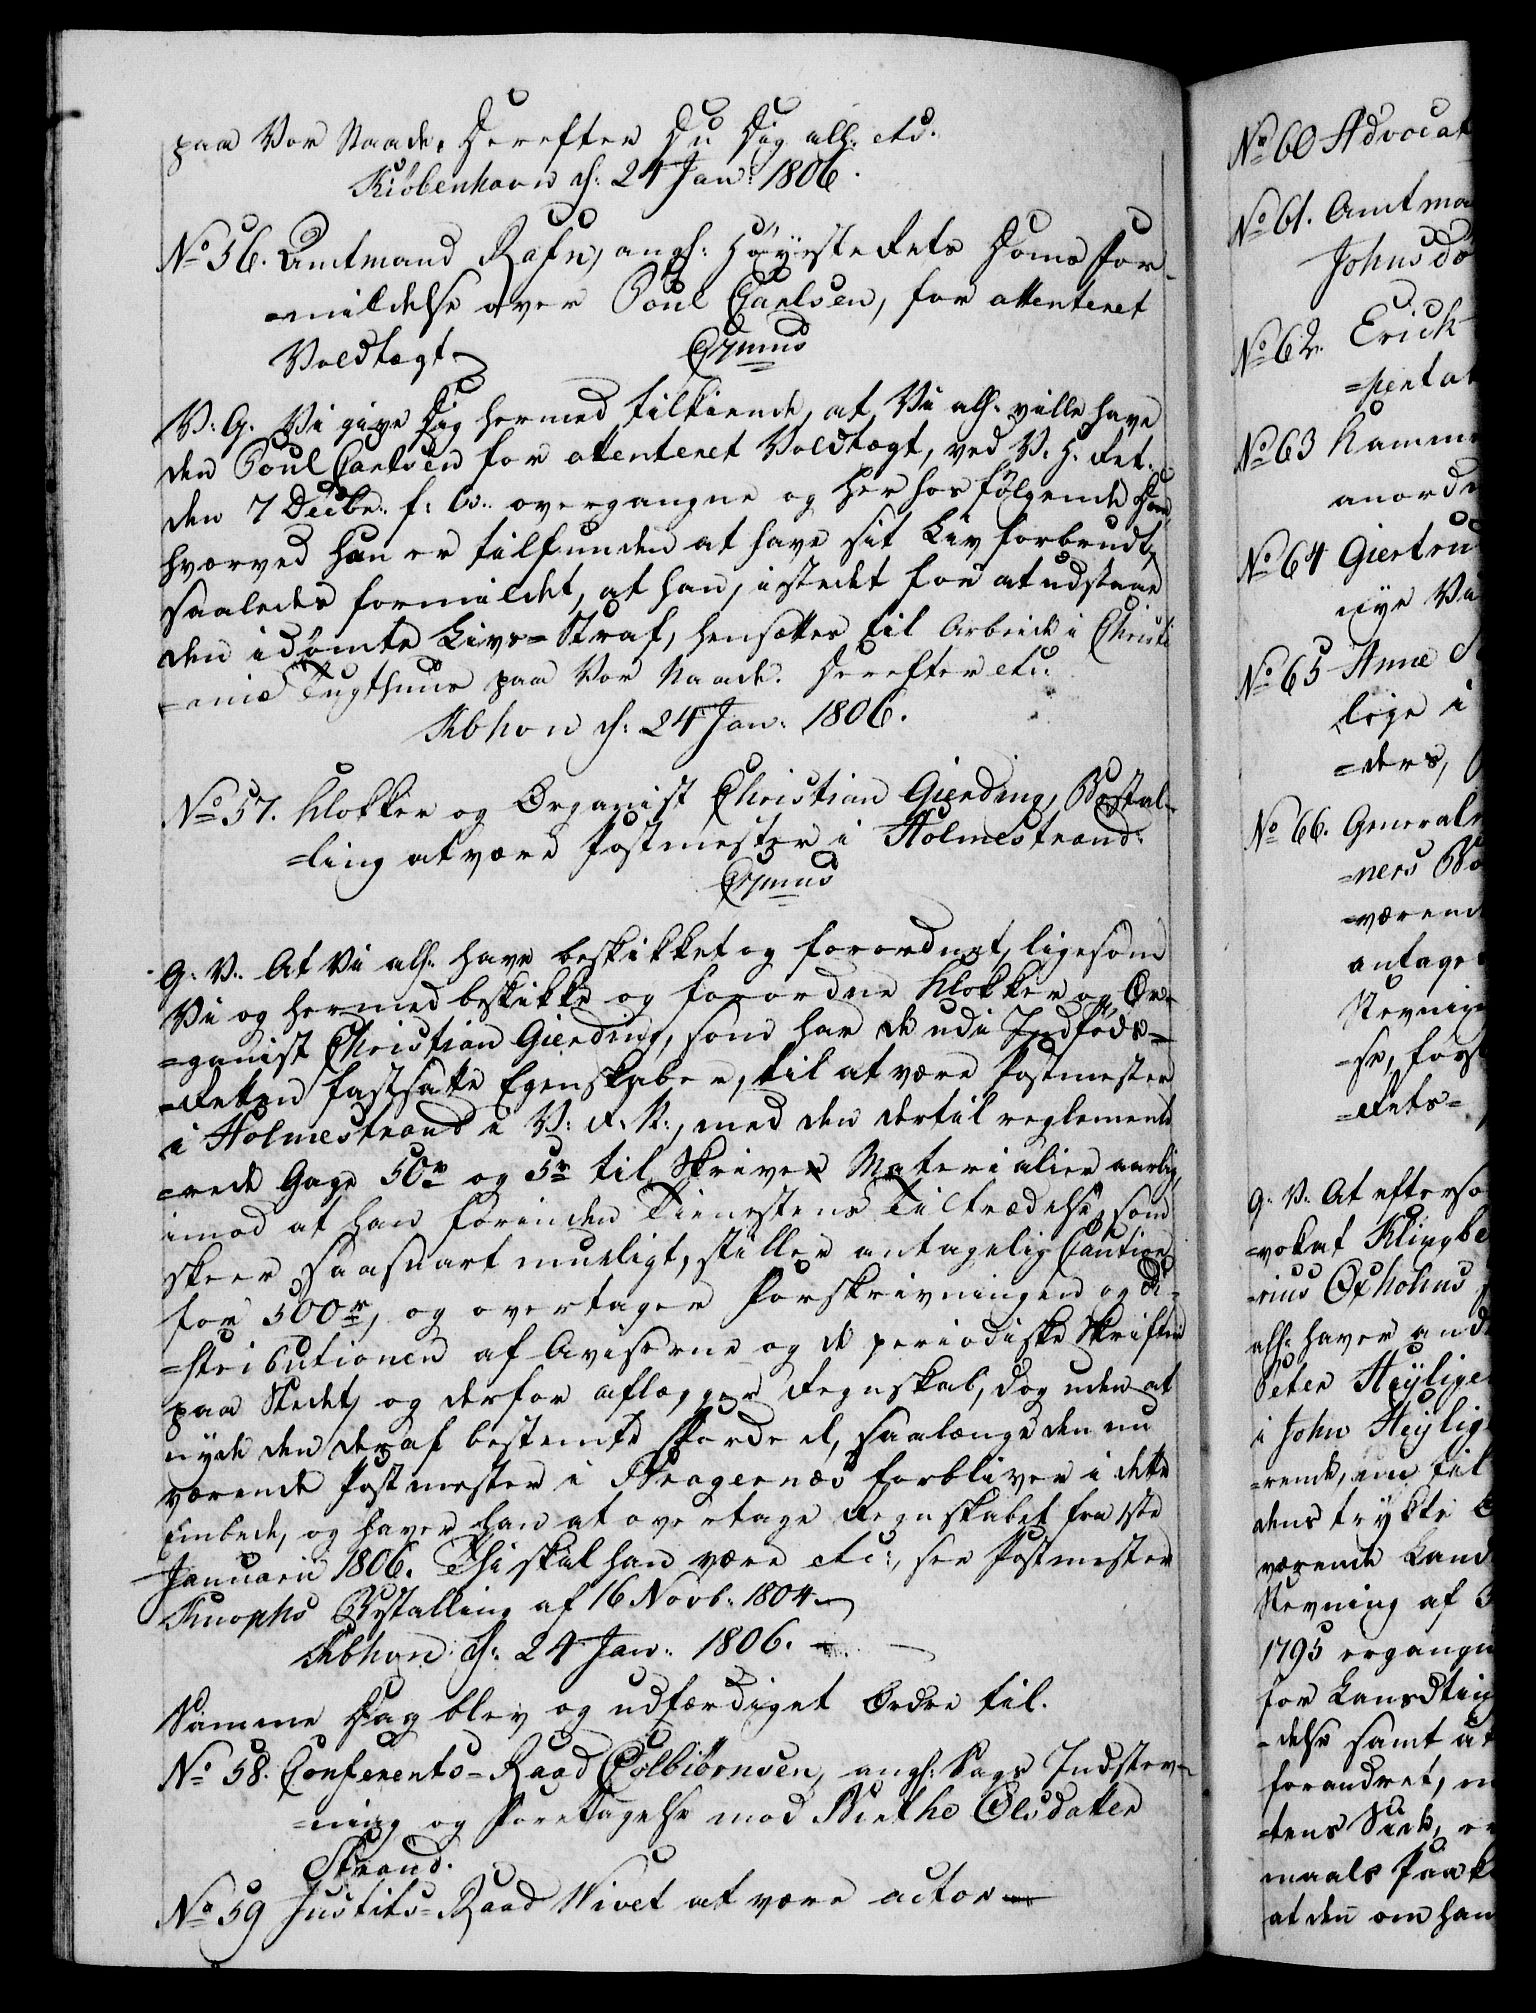 paa Vor Naade. Derefter Du Dig allh. etc.
Kiöbenhavn d: 24 Jan: 1806.
No 56. Amtmand Rafn, angl: Höyeste Rets Doms For-
=mildelse over Poul Carlsen, for attenteret
Voldtægt
C7mus
V: G: Vi give Dig hermed tilkiende, at Vi alh. ville have
den Poul Carlsen for attenteret Voldtægt, ved V. H. Ret.
den 7 Decbr. f: A. overgangne og her hos følgende Dom,
hvorved han er tilfunden at have sit Liv forbrudt,
saaledes formildet, at han, istedet for at udstaae
den idömte Livs-Straf, hensættes til Arbeide i Christi
=aniæ Tugthuus paa Vor Naade. Derefter etc:
Kbhvn d: 24 Jan: 1806.
No 57. Klokker og Organist Christian Gierding, Bestal-
=ling at være Postmester i Holmestrand.
C7mus
G: V: At Vi alh. have beskikket og forordnet, ligesom
Vi og hermed beskikke og forordne Klokker og Or-
=ganist Christian Gierding, som har de udi Indföds-
=Retten fastsatte Egenskaber, til at være Postmester
i Holmestrand i V: R. N:, med den dertil reglemente
=rede Gage 50r og 5r til Skrive Materialier aarlig,
imod at han forinden Tienestens Tiltrædelse, som
skeer saasnart mueligt, stiller antagelig Caution
for 500r, og overtager Forskrivningen og Di-
=stributionen af Aviserne og de periodiske Skrifter
paa Stedet, og derfor aflægger Regnskab, dog uden at
nyde den deraf bestemte Fordeel, saalænge den nu
værende Postmester i Bragernæs forbliver i dette
Embede, og haver han at overtage Regnskabet fra 1ste
Januarii 1806. Thi skal han være etc:, see Postmester
Knophs Bestalling af 16 Novb: 1804.
Kbhvn d: 24 Jan: 1806.
Samme Dag blev og udfærdiget Ordre til.
No 58. Conferents-Raad Colbiörnsen, angl: Sags Indstev-
=ning og Foretagelse mod Birthe Olsdatter
Strand.
No 59 Justits-Raad Wivet at være actor
No 60 Advocat
No 61. Amtma
Johnsdo
No 62. Erich
No 63 Kamme
anord
No 64 Giertru
nye Va
No 65 Anne
lige i
=ders,
No 66. General
=ners Bo
=værend
antage
Stevning
=se, først
=Rets-
G: V: At efterso
=vokat Klingbe
=rius Oxholms
alh: haver and
Peter Heylige
i John Heylig
=rende, en til
dens trykte
værende Land
Stevning af
1795 ergangn
for Landsting
=delse samt at
forandret, m
=tens Sted, e
maals Paak
at den om han